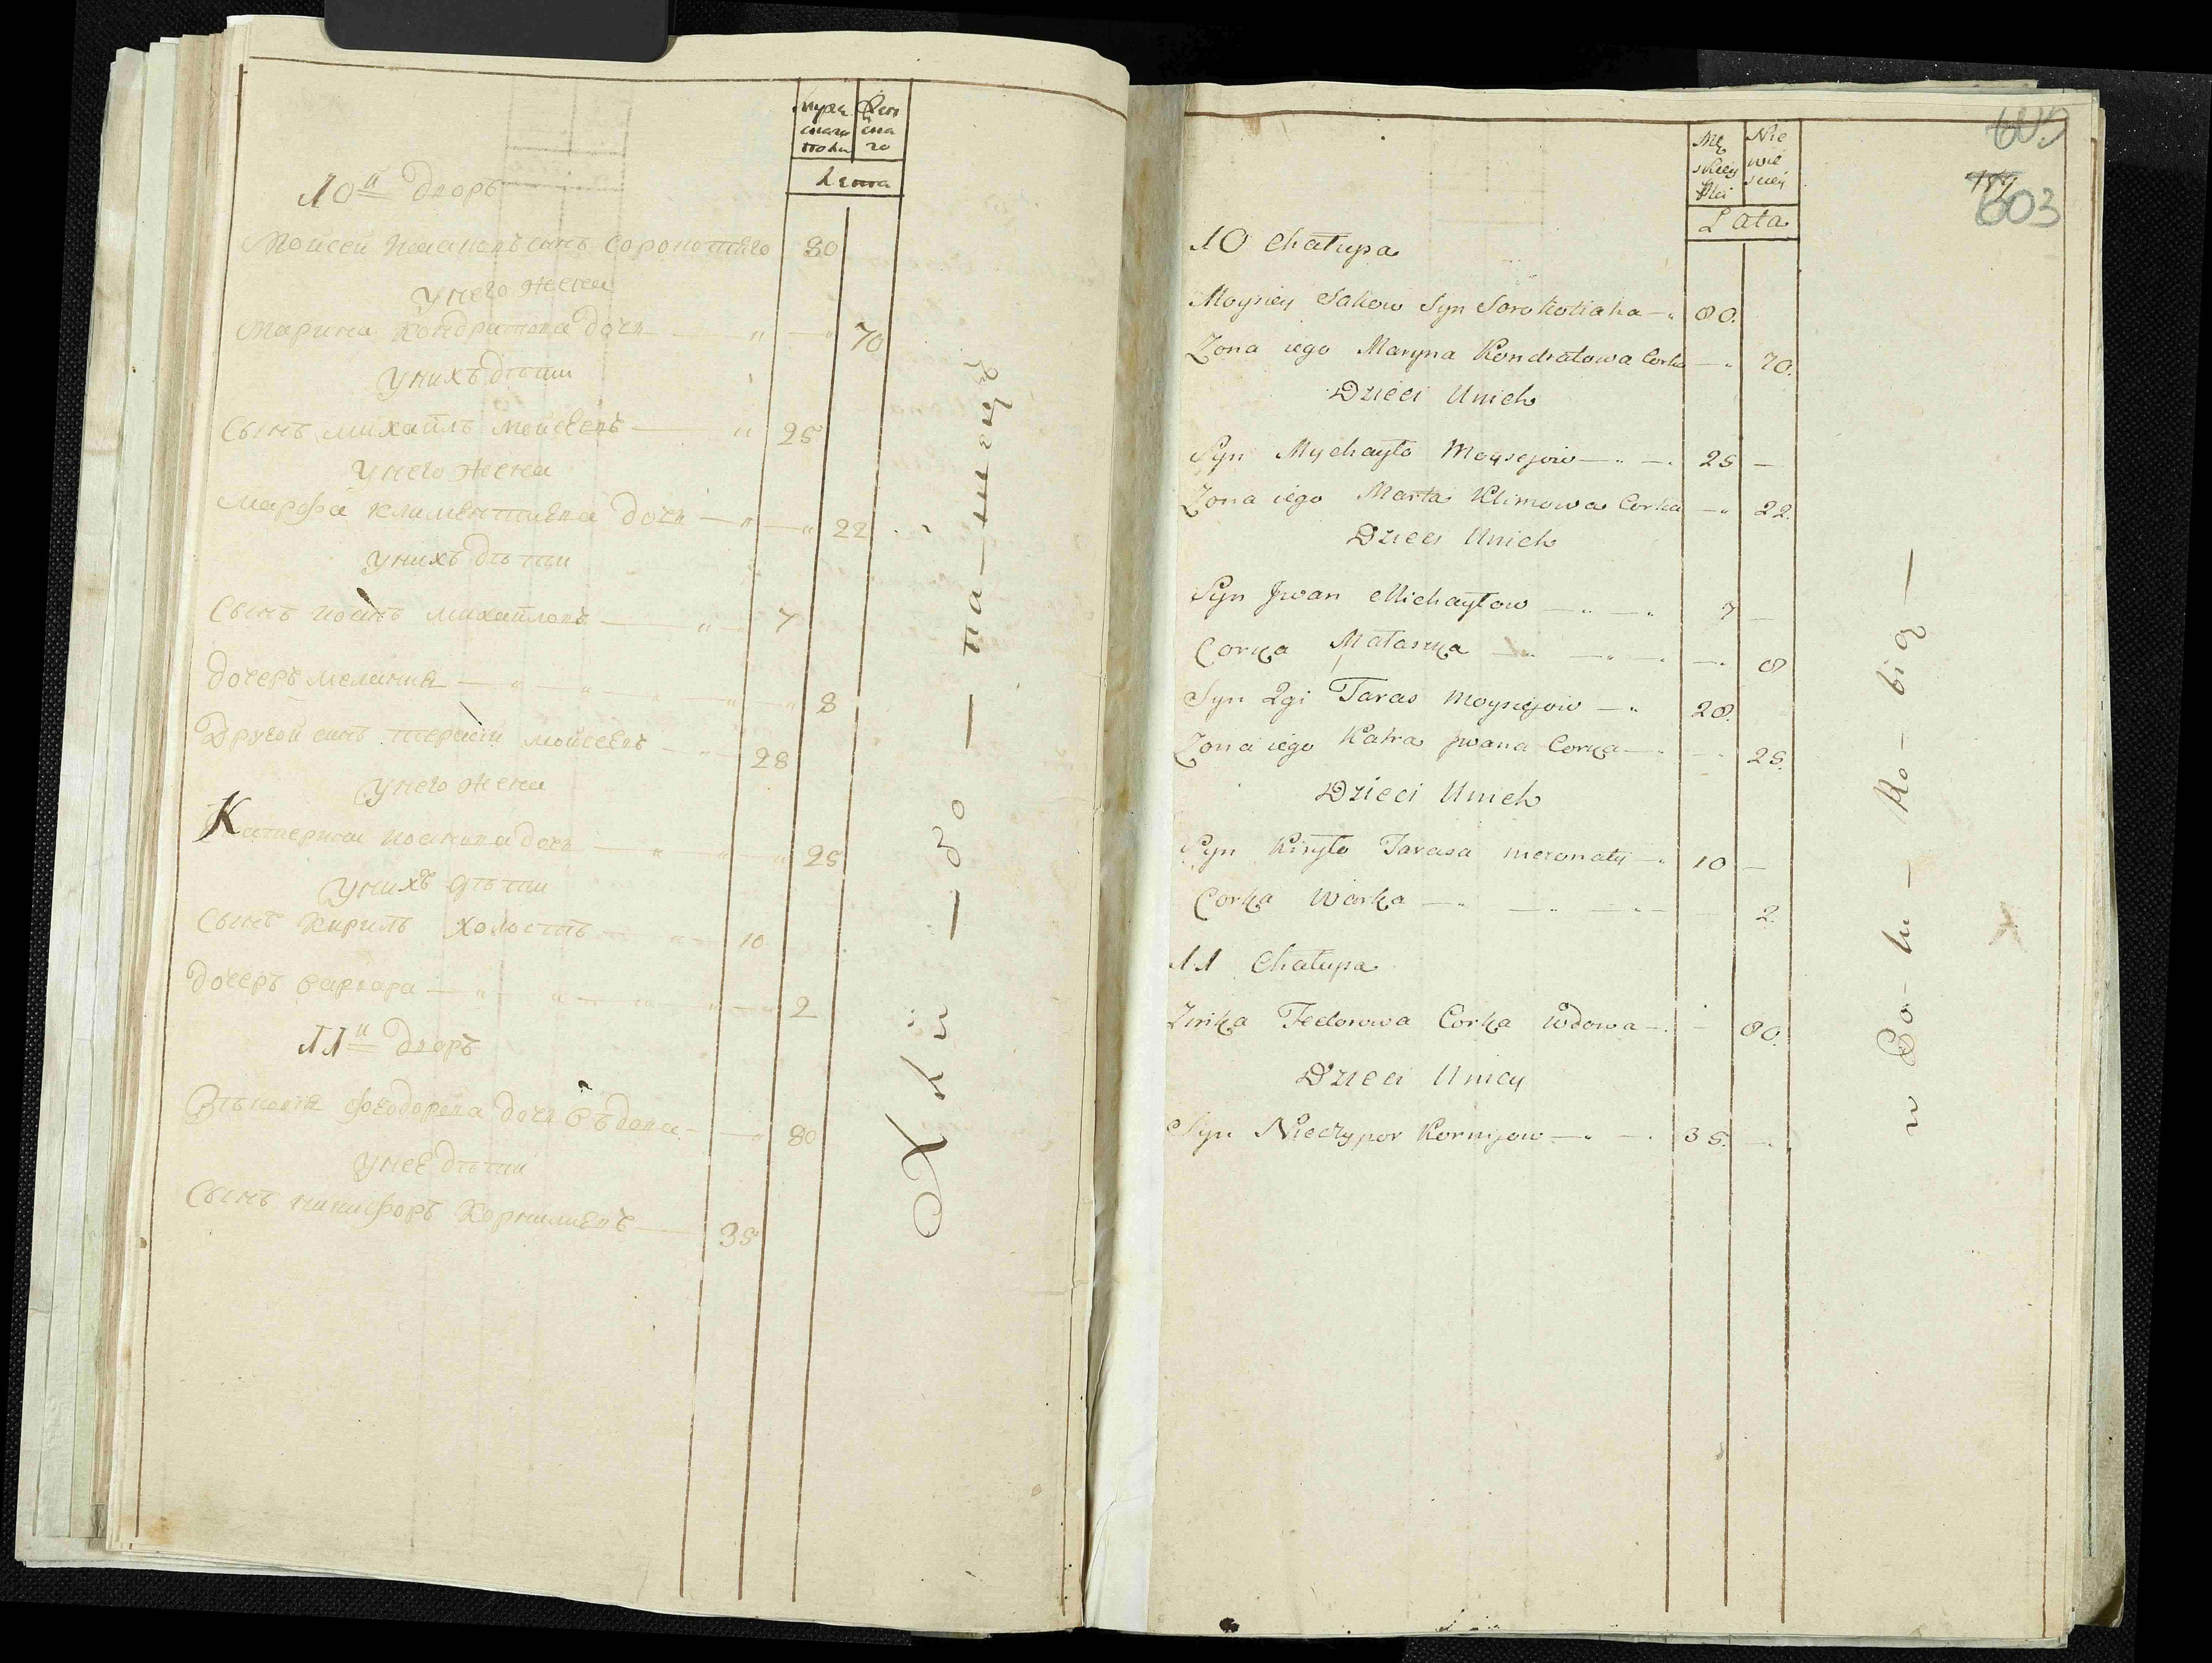 Мужеска полу
Женска го
Лета
10й Дворъ
Мойсей Иакововъ сынъ Сорокотяго 80
У него жена
Марина Кондратова дочь 70
У нихъ дѣти
Сынъ Михайлъ Мойсеевъ 25
У него жена
Марфа Климентиева дочь 22
У нихъ дѣти
Сынъ Иоанъ Михайловъ 7
Дочерь Мелания 8
Другой синъ Терасий Мойсеевъ 28
У него жена
Катерина Иоанова дочь 25
У нихъ дѣти
Сынъ Кирилъ холостъ 10
Дочеръ Варвара 2
11й Дворъ
Феодорова дочь въдова 80
У нее дѣти
Сынъ Никифоръ Корнилиевъ 35
Męskiey Płci
Niewiesciey
Lata
603
10 Chałupa
Moysiey Jakow Syn Sorokotiaha 80.
Zona iego Maryna Kondratowa Corka 70.
Dzieci Unich
Syn Mychayło Moysejow 25
Zona iego Marta Klimowa Corka 22.
Dzieci Unich
Syn Jwan Michayłow 7
Corka Małaszka 8
Syn 2gi Taras Moysiejow 28.
Zona iego Katra Jwana Corka 25.
Dzieci Unich
Syn Kiryło Tarasa niezonaty 10
Corka Warka 2.
11 Chałupa
Zinka Fedorowa Corka Wdowa 80.
Dzieci Uniey
Syn Nieczypor Kornijow 35.